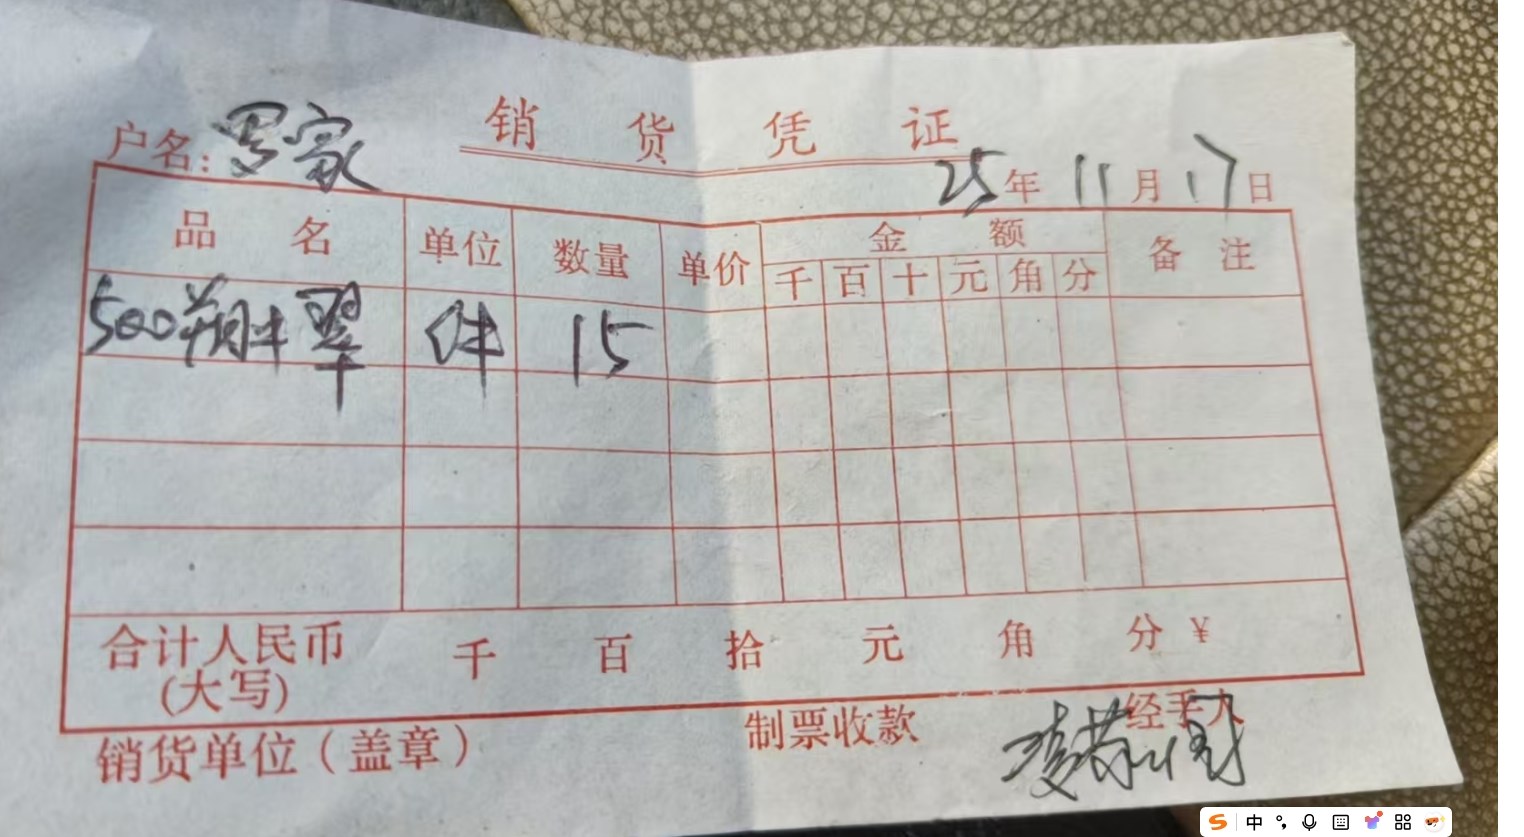 销 货 凭 证
户名：罗家
25年 11月 17日
品 名 单位 数量 单价 金 额 备 注
千 百 十 元 角 分
500 翠 件 15
合计人民币 千 百 拾 元 角 分 ¥
(大写)
销货单位（盖章） 制票收款 经手人
中